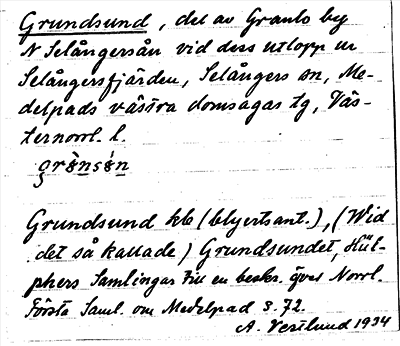 Grundsund, del av Granlo by
N Selångersån vid dess utlopp ur
Selångersfjärden, Selångers sn, Me-
delpads västra domsagas tg, Väs-
ternorrl. l.
Grundsund kb (blyertsant.), (Wid
det så kallade) Grundsundet, Hül-
phers Samlingar til en beskr. öfver Norrl.
Första Saml. om Medelpad s. 72.
A. Vestlund 1934